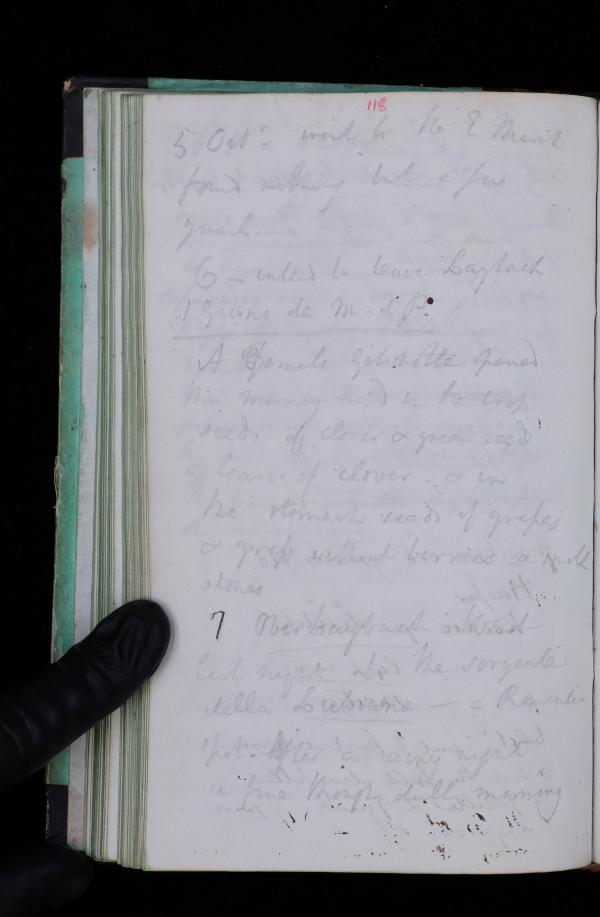 118
5 Octr. went to the E Marsh
found nothing but a few
quails.
6 – intend to leave Laybach
1 Guino de M. d P.
A Female Gelinotte opened
this morning had in the crop
seeds of clover & green seed
& leaves of clover & in
the stomach seeds of grapes
& grass without berries &
stones
7 Ober Laybach
last night the sorgente
della – a Romantic
spot. After a rainy night
a fine though dull morning